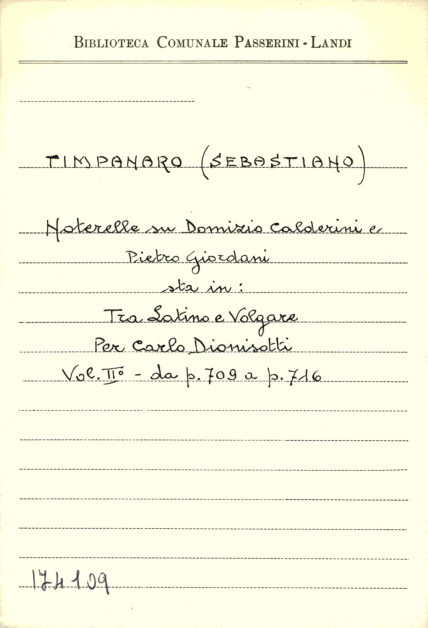 BIBLIOTECA COMUNALE PASSERINI - LANDI
TIMPANARO (SEBASTIANO)
Noterelle su Domizio Calderini e
Pietro Giordani
sta in:
Tra Latino e Volgare
Per Carlo Dionisotti
Vol. II° - da p. 709 a p. 716
174109